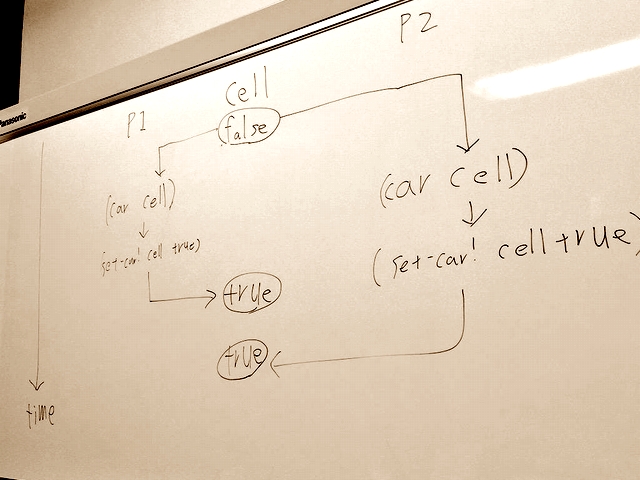 P2
cell
Panasonic
P1
false
(car cell)
(car cell)
(set-car! cell true)
(set-car! cell true)
true
true
time